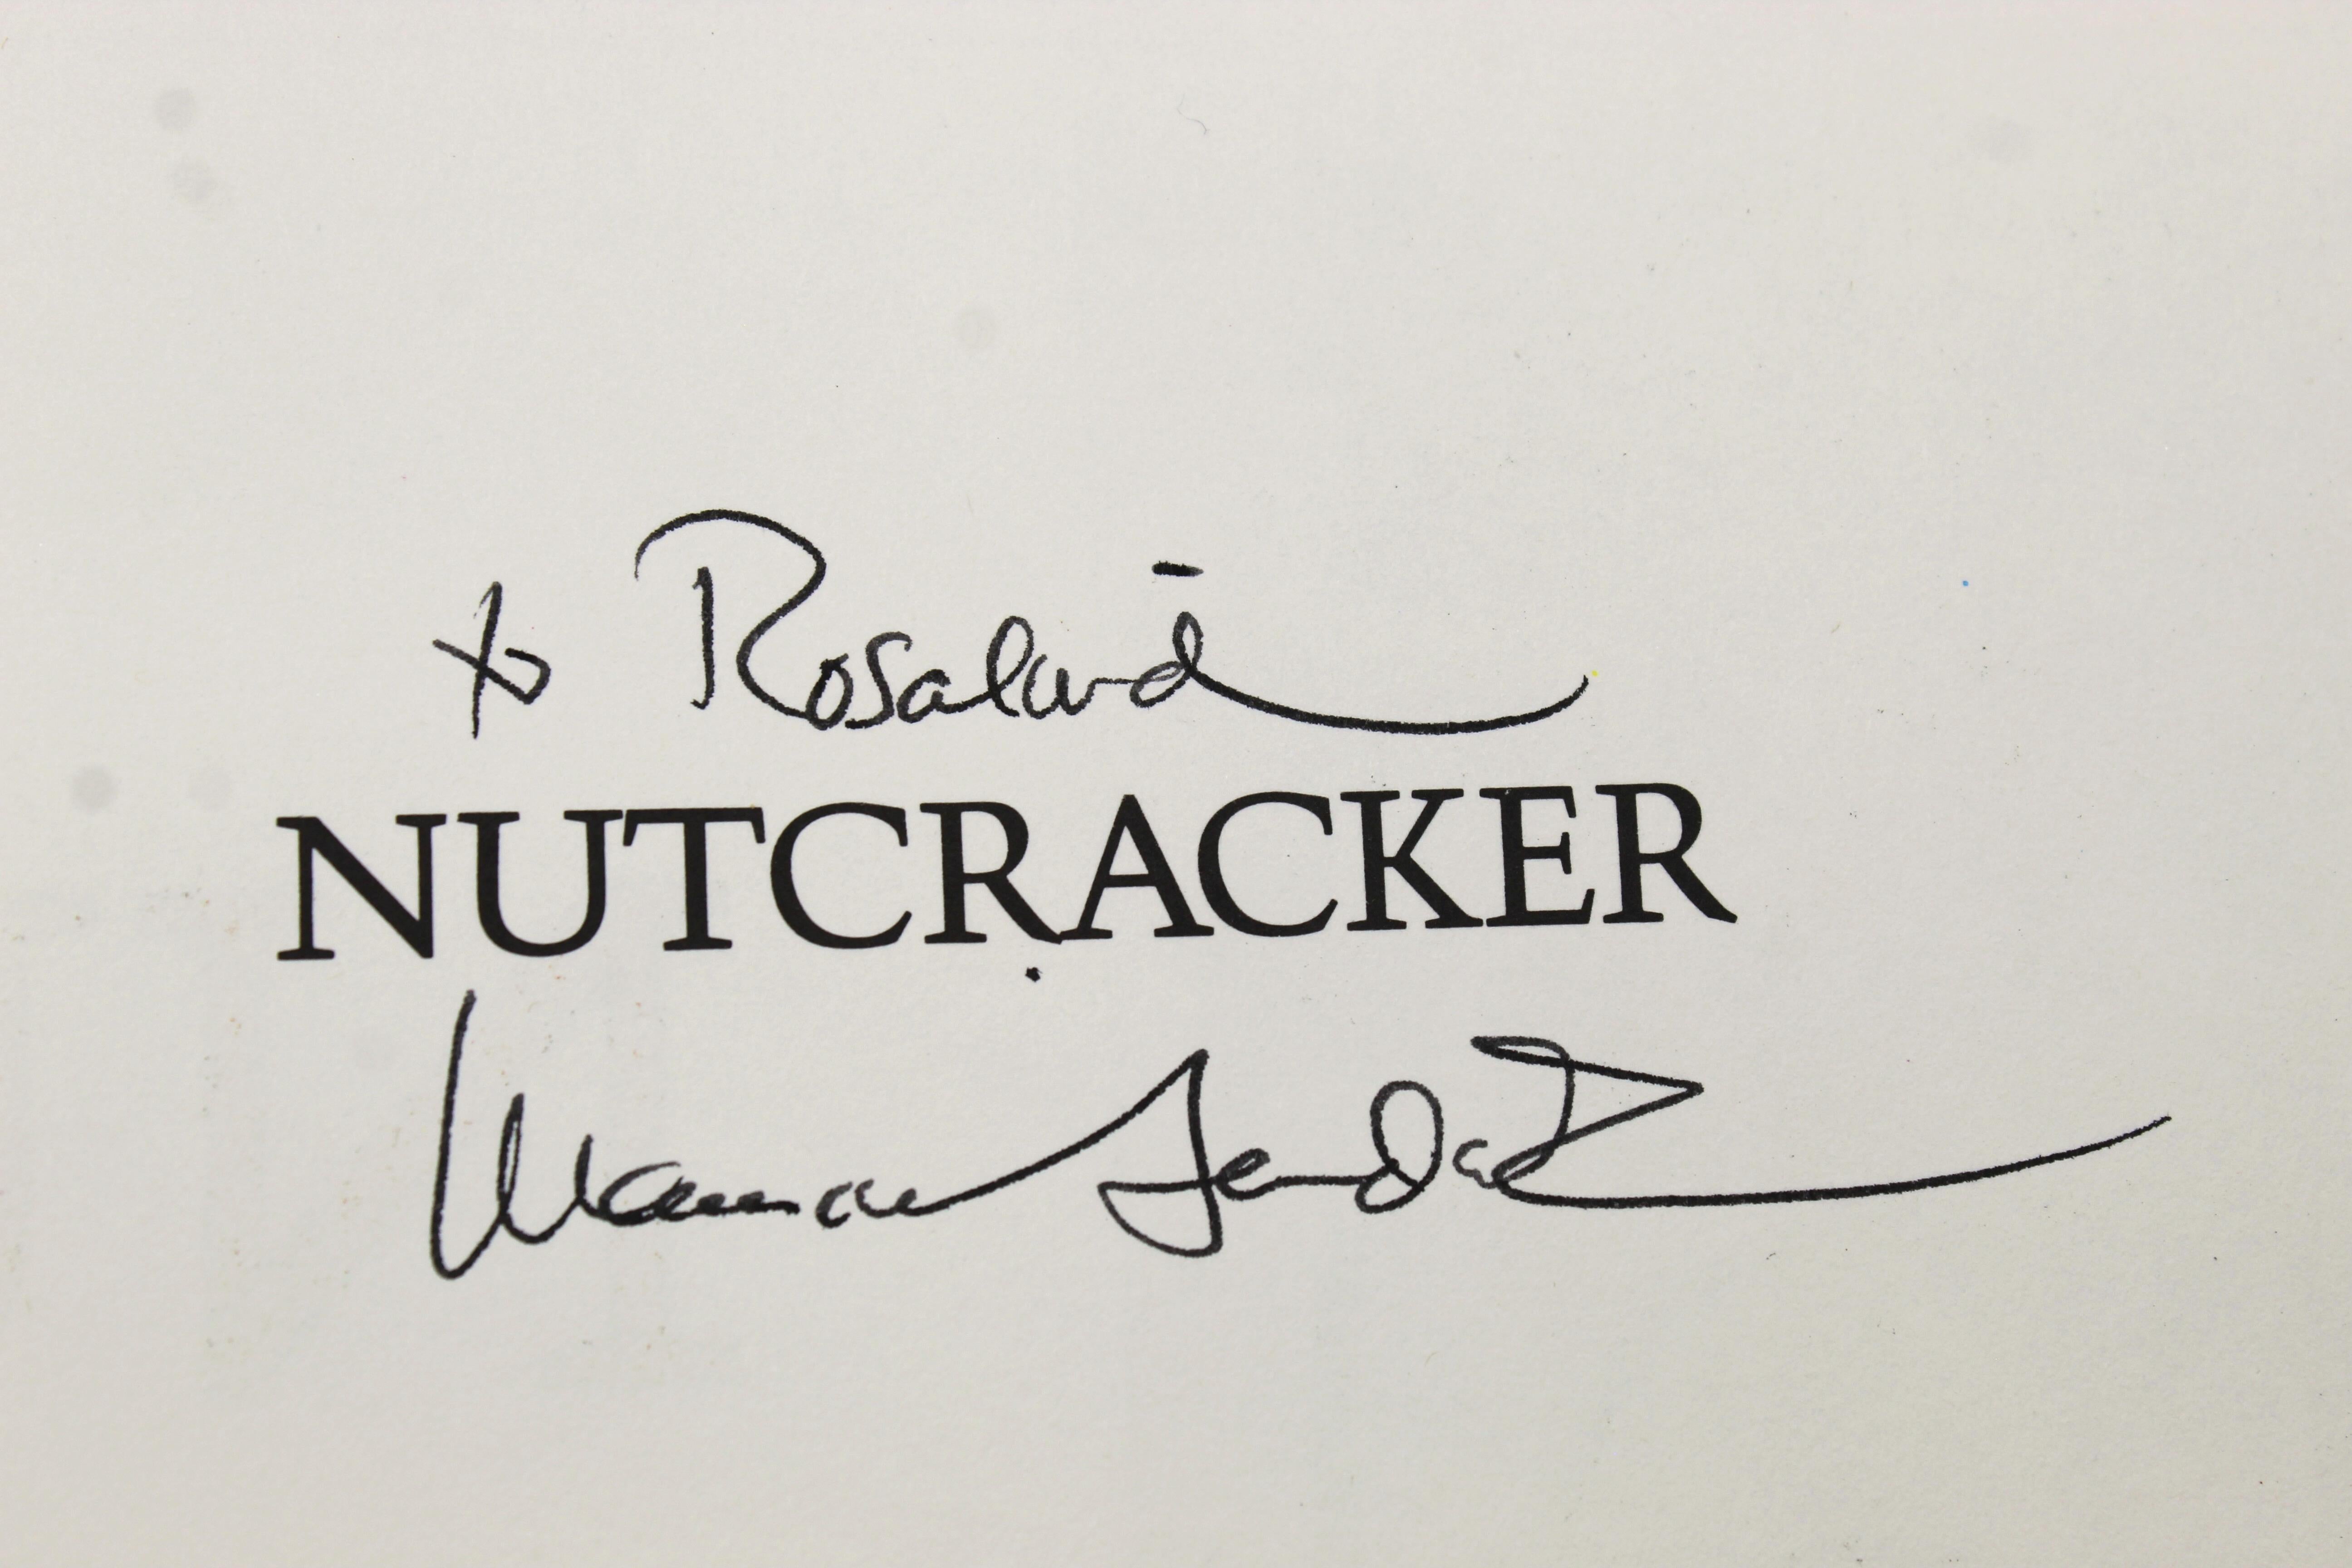 to Rosalind
NUTCRACKER
Maurice Sendak